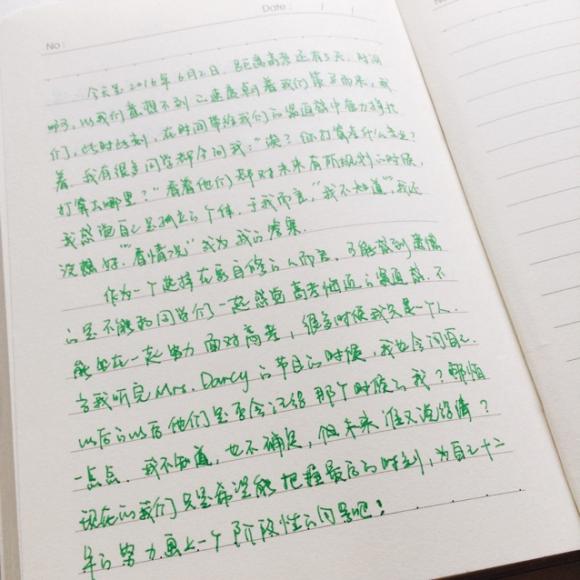 No:
Date: / /
No
今天是2016年6月2日，距离高考还有5天，时间
啊，以我们意想不到的速度朝着我们袭来，我
们，此时此刻，在时间带给我们的紧迫感中奋力挣扎
着，我有很多同学都会问我："诶？你打算考什么专业？
打算去哪里？"看着他们都对未来有所规划的时候，
我感觉自己是孤立的个体，于我而言，"我不知道"，"我还
没想好"，"看情况"成为我的答案．
作为一个选择在家自修的人而言，可能感到遗憾
的是不能和同学们一起感觉高考临近的紧迫感．不
能坐在一起努力面对高考，很多时候我只是一个人．
当我听完Mrs. Darcy的节目的时候，我也会问自己．
以后的以后他们是否会记得那个时候的我？哪怕
一点点．我不知道，也不确定，但未来谁又说得清？
现在的我们只是希望能把握最后的时刻，为自己十二
年的努力画上一个阶段性的问号吧！